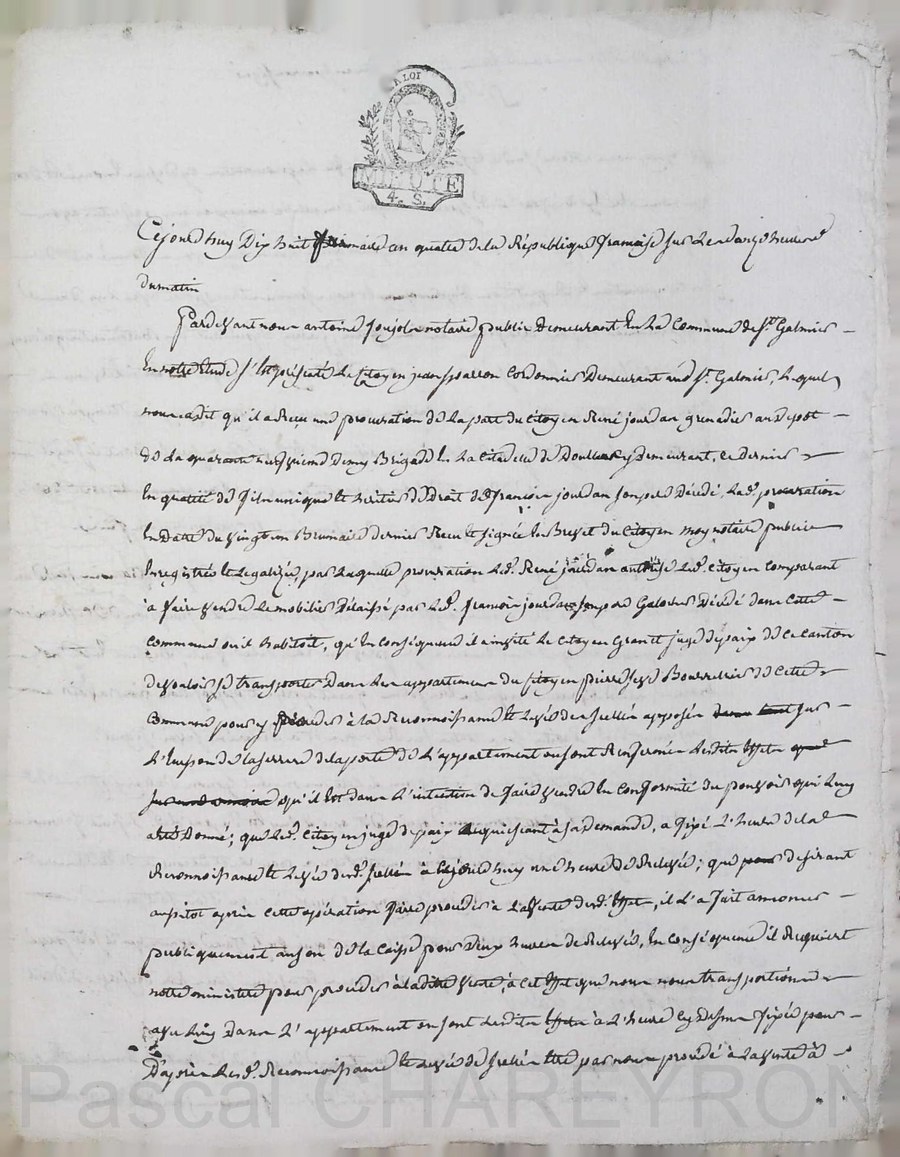 A LOI
MINUTE
4. S.
Cejourdhuy Dix huit frimaire an quatre de la République française sur les onze heures
du matin
Pardevant nous antoine poujol notaire public Demeurant En la Commune de St. Galmier
En notre Etude s'est présenté Le Citoyen jean Cordonnier Demeurant aud. St. Galmier, Lequel
nous a dit qu'il a Recu une procuration de la part du Citoyen René jourdan grenadier au Depot
de la quarante Demy Brigade En la Citadelle de y Demeurant, ce dernier
En qualité de fils unique et héritier de Droit de françois jourdan son père Décédé, Lad. procuration
En datte du vingt un Brumaire dernier Recu et signée En Brevet du Citoyen notaire public
Enregistrée et Legalizée, par Laquelle procuration Led. René jourdan autorise Led. Citoyen comparant
à faire vendre Le mobilier Délaissé par Led. françois jourdan son père Galocher Décédé dans Cette
Commune ou il habitoit, qu'En conséquence il a invité Le Citoyen juge de paix de ce canton
de vouloir se transporter Dans Les appartements du Citoyen pierre Bourrelier de Cette
Commune pour y procéder à la Reconnoissance et Levée des scellés apposés sur
L' de la serrure de la porte de L'appartement ou sont Renfermés Lesdits Effets
qu'il Est dans L'intention de faire vendre En conformité du pouvoir qui Luy
a été Donné; que Led. Citoyen juge de paix à sa demande, a fixé L'heure de la
Reconnoissance et Levée desd. scellés à Cejourd'huy une heure de Relevée; que desirant
aussitot après Cette opération faire procéder à La vente desd. Effets, il L'a fait annoncer
publiquement au son de la Caisse pour Deux heures de Relevée, En conséquence il Requiert
notre ministère pour procéder à ladite vente, à cet Effet que nous nous transportions
avec Luy Dans L'appartement ou sont Lesdits Effets à L'heure Cy dessus fixée pour
D'après Lesd. Reconnoissance et Levée de scellés Etre par nous procédé à La vente à
Pascal CHAREYRON